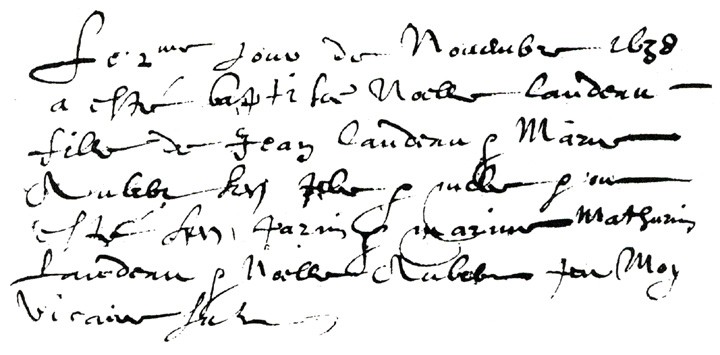 Le 2me jour de Novembre 1638
a esté baptisée Noelle Landeau
fille de Jean Landeau & Marie
Aubebe ses pere & mere & ont
esté ses parin & marine Mathurin
Landeau & Noelle Aubebe par Moy
Vicaire